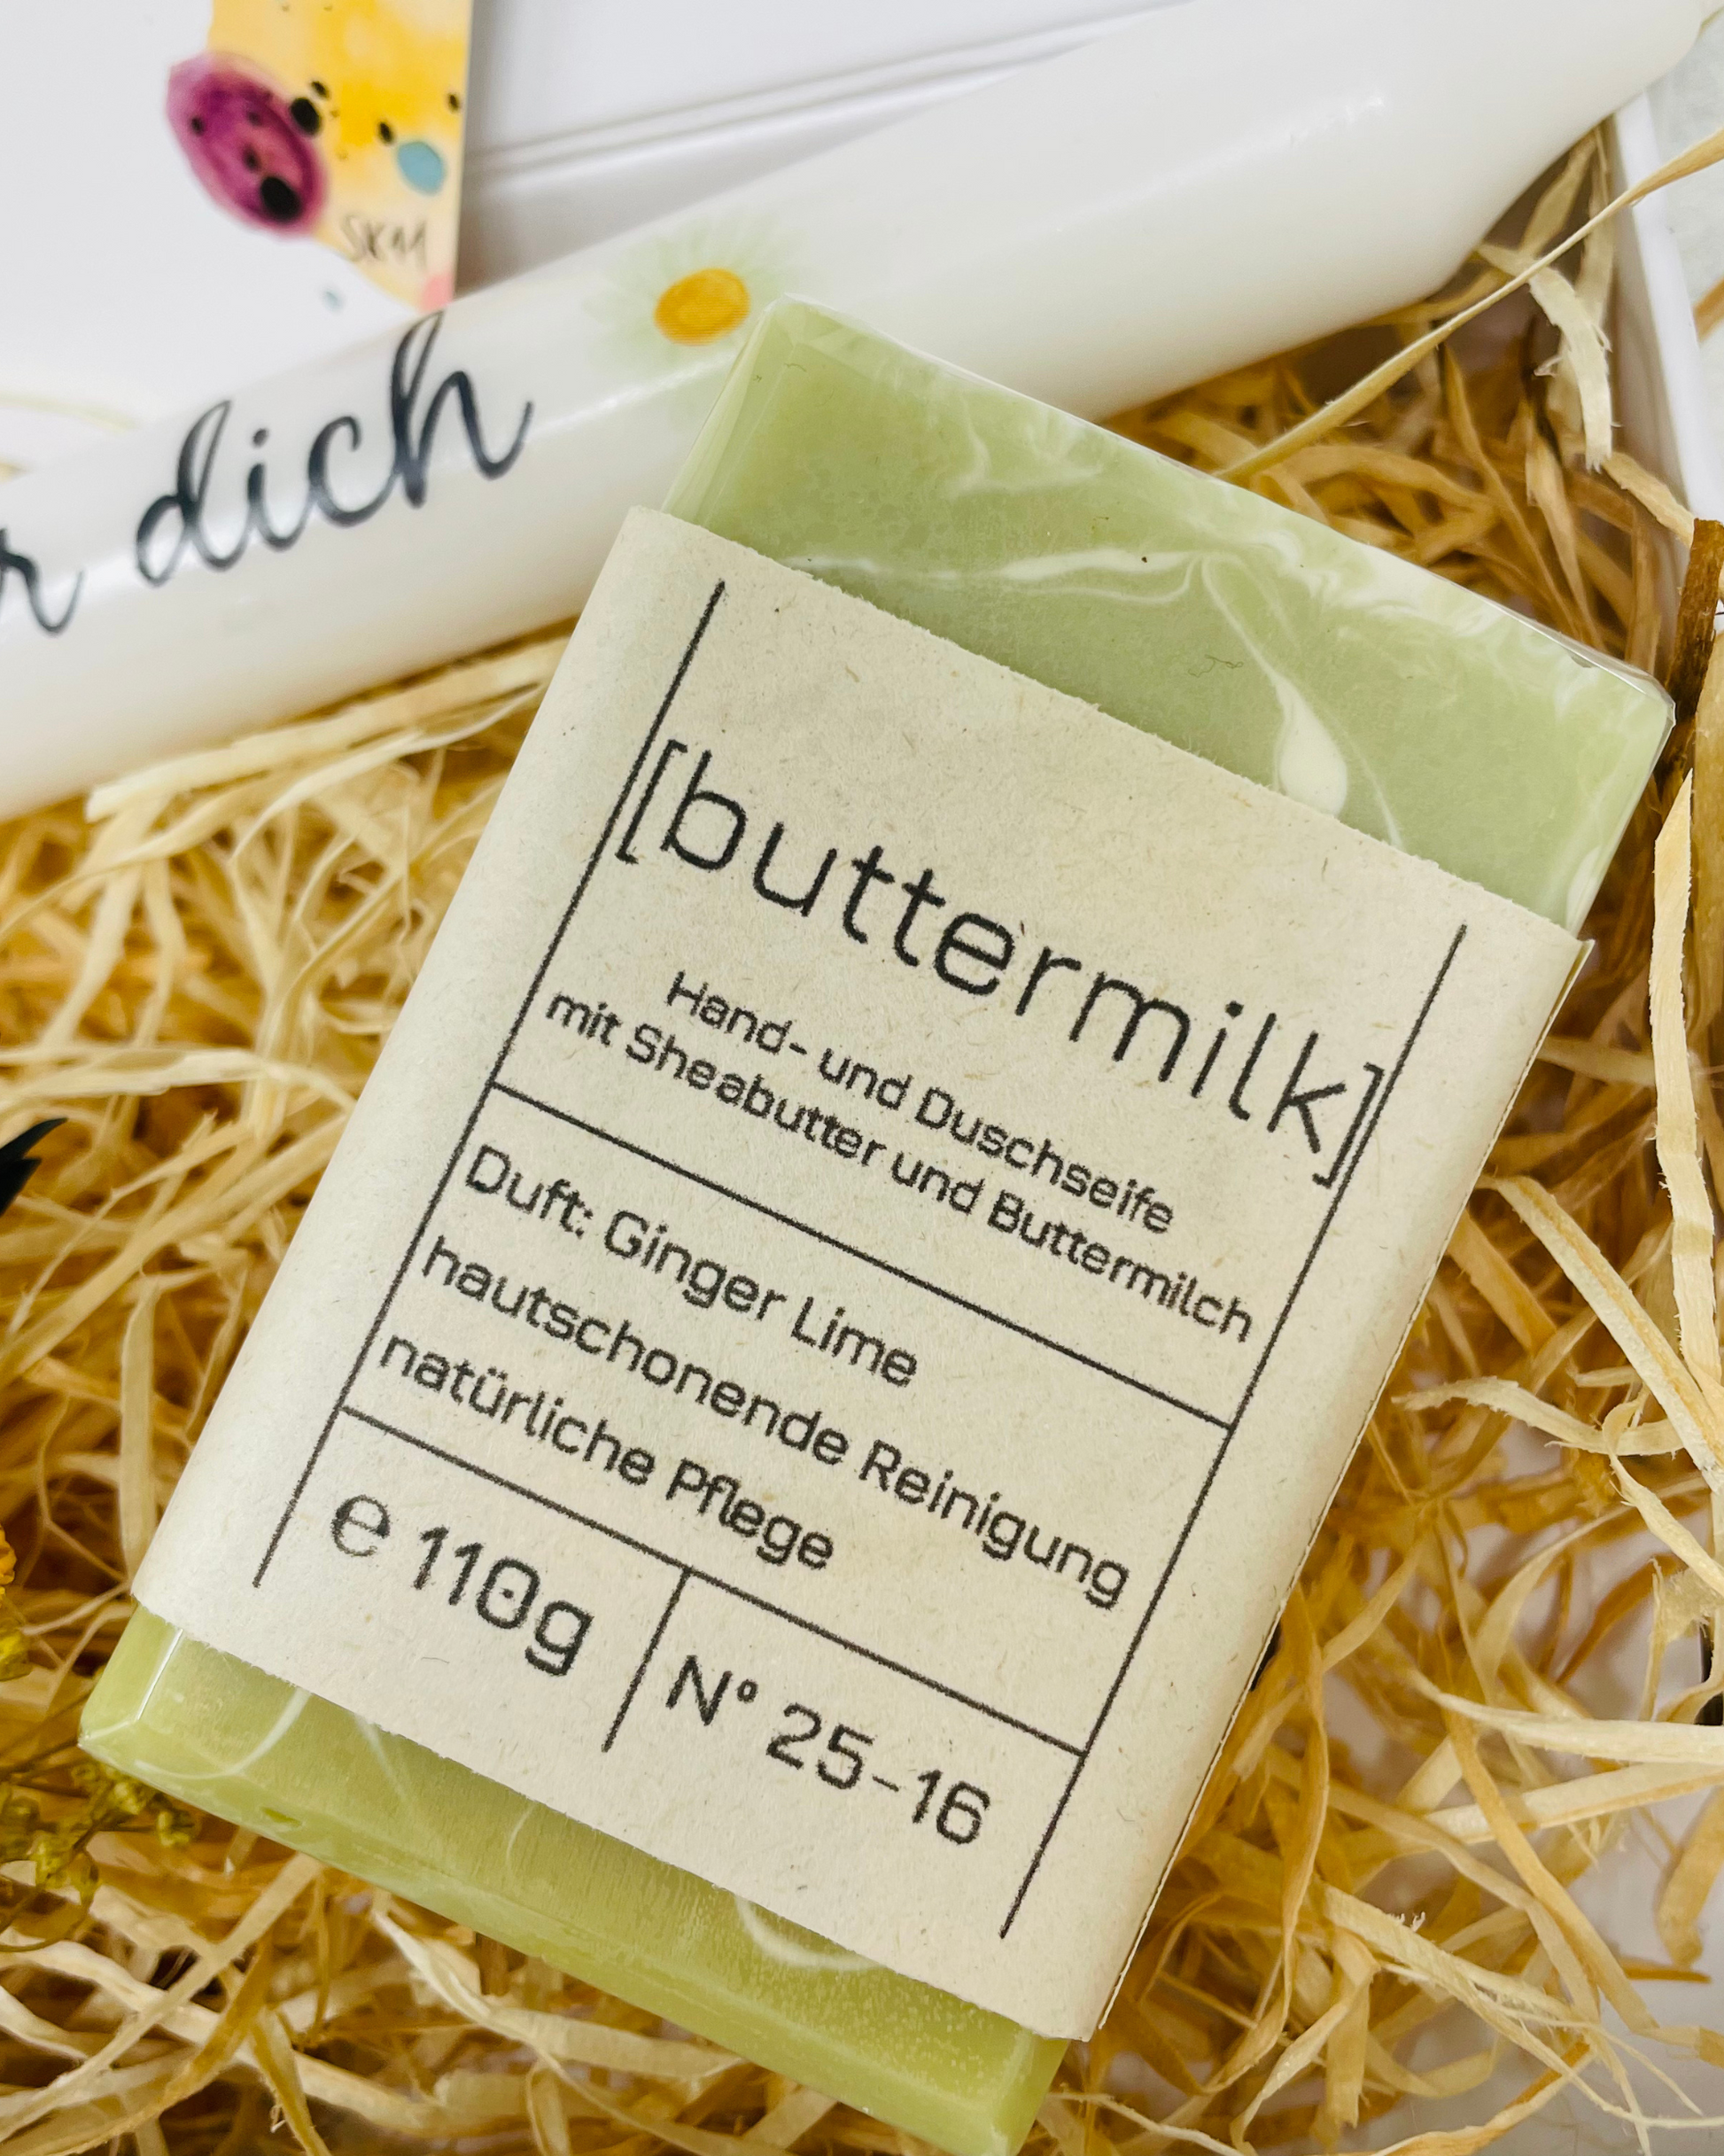 SKM
r dich
[buttermilk]
Hand- und Duschseife
mit Sheabutter und Buttermilch
Duft: Ginger Lime
hautschonende Reinigung
natürliche Pflege
℮ 110g
N° 25-16